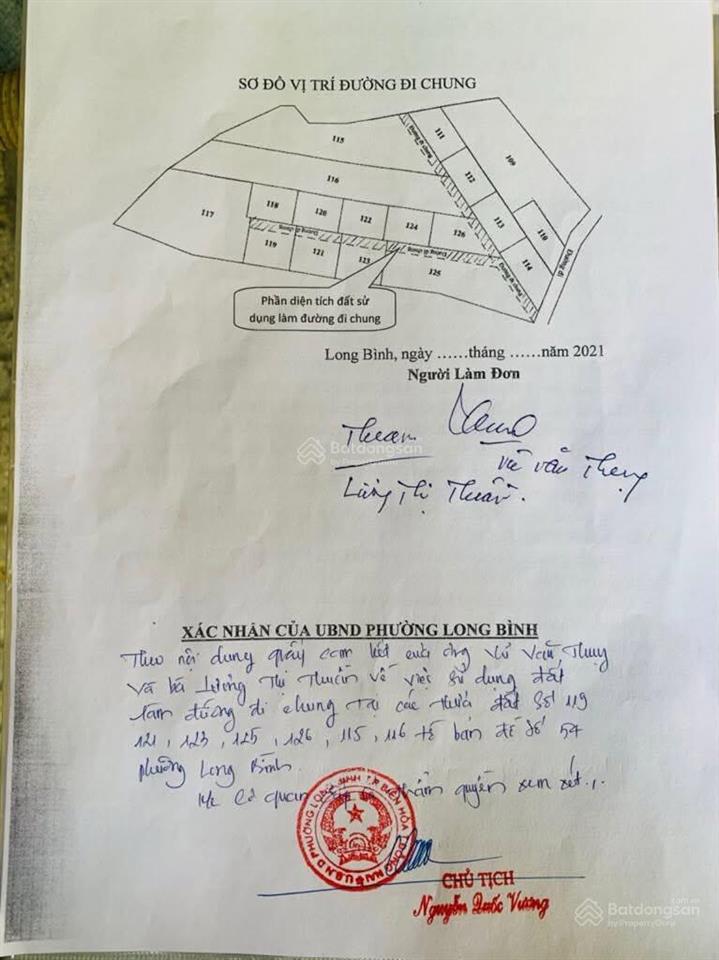 SƠ ĐỒ VỊ TRÍ ĐƯỜNG ĐI CHUNG
115
111
109
116
112
117
118
120
122
124
126
113
110
119
121
123
125
114
Đường đi chung
Đường đi chung
Đường đi chung
Đường đi chung
Đường đi
Phần diện tích đất sử
dụng làm đường đi chung
Long Bình, ngày ……tháng ……năm 2021
Người Làm Đơn
Thuan
Vũ Văn Thụy
Lương Thị Thuần.
Batdongsan
by PropertyGuru
XÁC NHẬN CỦA UBND PHƯỜNG LONG BÌNH
Theo nội dung giấy cam kết của ông Vũ Văn Thụy
Và bà Lương Thị Thuần về việc sử dụng đất
làm đường đi chung tại các thửa đất số 119
121, 123, 125, 126, 115, 116 tờ bản đồ số 54
phường Long Bình.
cơ quan thẩm quyền xem xét./.
U.B.N.D PHƯỜNG LONG BÌNH TP. BIÊN HÒA ĐỒNG NAI
CHỦ TỊCH
Nguyễn Quốc Vương
Batdongsan
.com.vn
by PropertyGuru